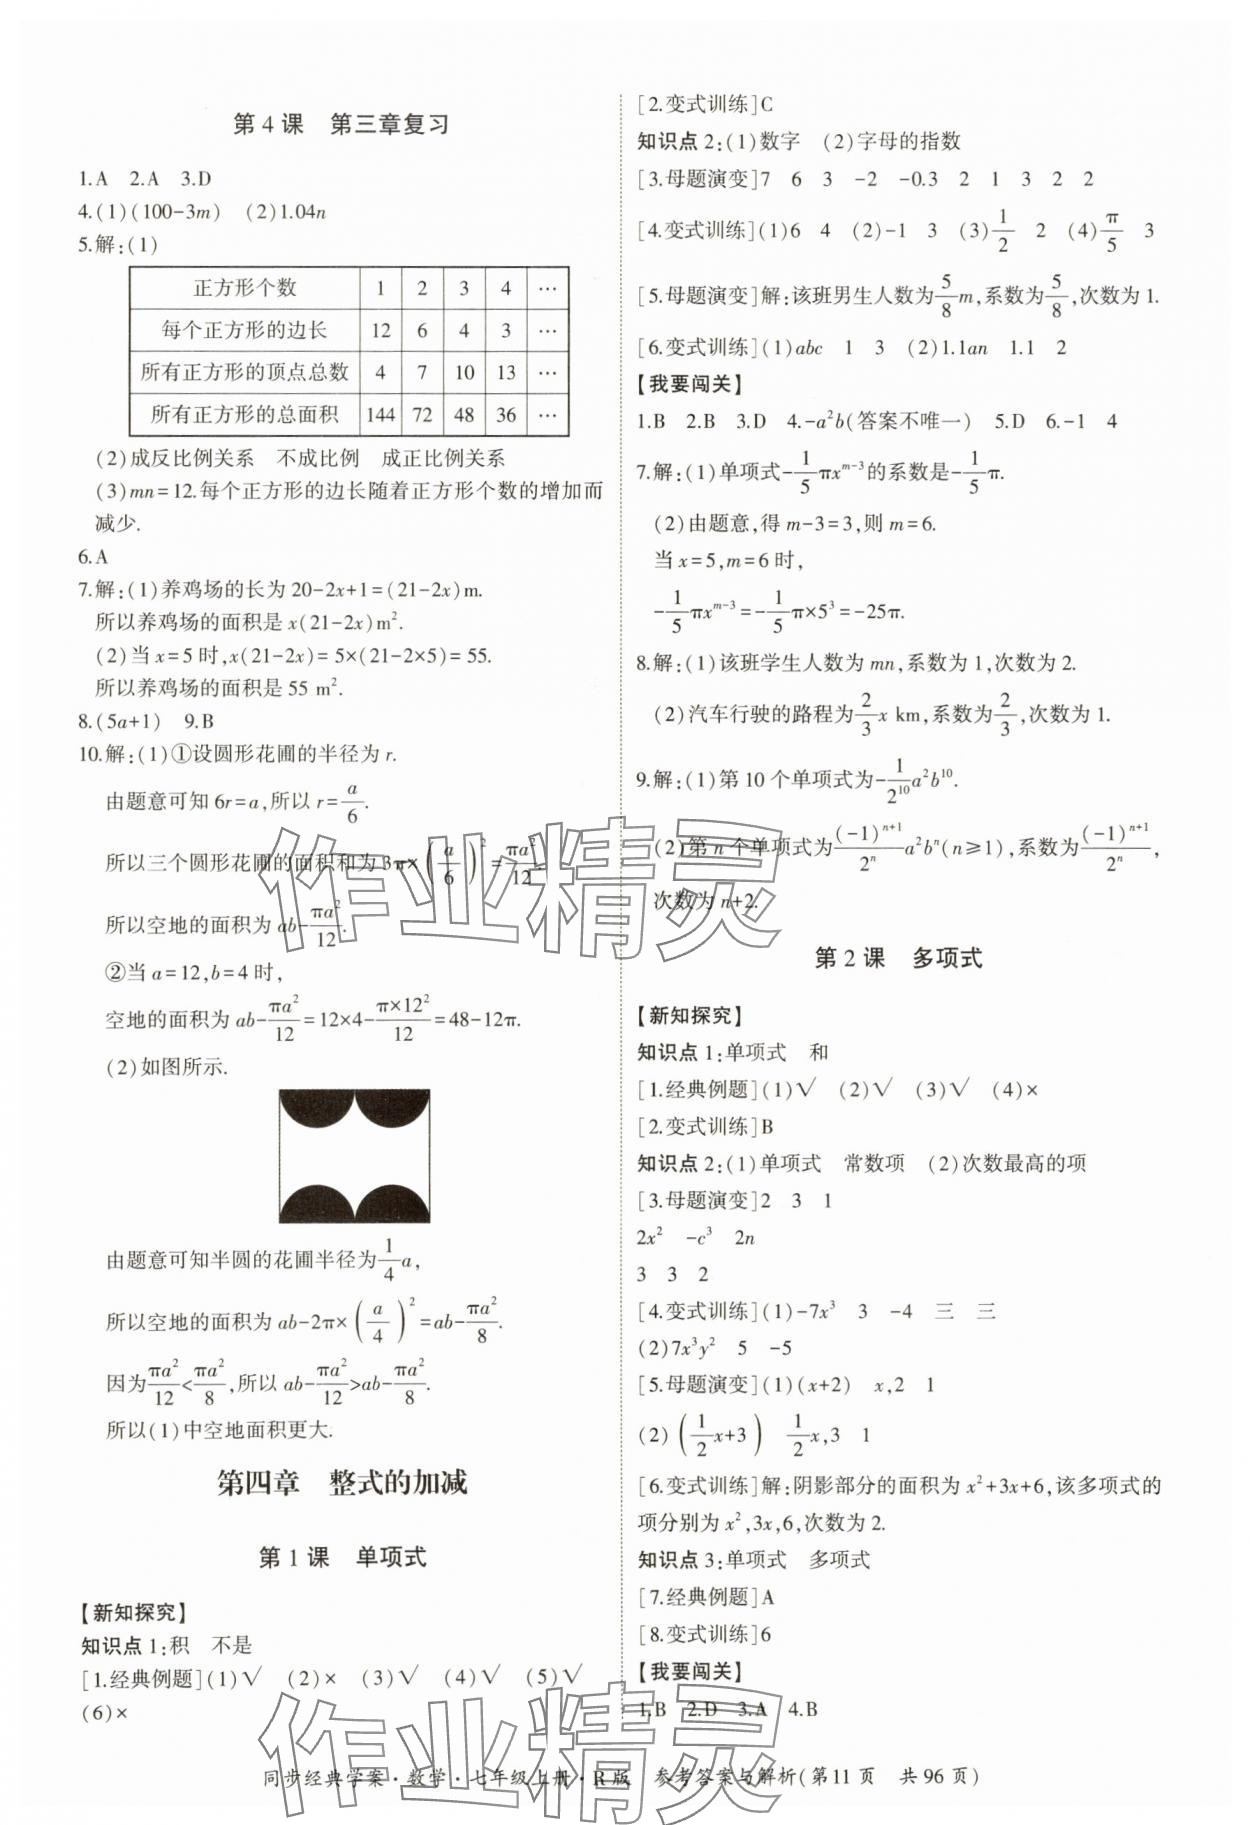 第4课　第三章复习
1.A　2.A　3.D
4.(1)(100-3m)　(2)1.04n
5.解:(1)
正方形个数　1　2　3　4　…
每个正方形的边长　12　6　4　3　…
所有正方形的顶点总数　4　7　10　13　…
所有正方形的总面积　144　72　48　36　…
(2)成反比例关系　不成比例　成正比例关系
(3)mn=12.每个正方形的边长随着正方形个数的增加而
减少.
6.A
7.解:(1)养鸡场的长为20-2x+1=(21-2x)m.
所以养鸡场的面积是x(21-2x)m².
(2)当x=5时,x(21-2x)=5×(21-2×5)=55.
所以养鸡场的面积是55 m².
8.(5a+1)　9.B
10.解:(1)①设圆形花圃的半径为r.
由题意可知6r=a,所以r=a/6.
所以三个圆形花圃的面积和为3π×(a/6)²=πa²/12.
所以空地的面积为ab-πa²/12.
②当a=12,b=4时,
空地的面积为ab-πa²/12=12×4-π×12²/12=48-12π.
(2)如图所示.
由题意可知半圆的花圃半径为1/4a,
所以空地的面积为ab-2π×(a/4)²=ab-πa²/8.
因为πa²/12<πa²/8,所以ab-πa²/12>ab-πa²/8.
所以(1)中空地面积更大.
第四章　整式的加减
第1课　单项式
【新知探究】
知识点1:积　不是
[1.经典例题](1)√　(2)×　(3)√　(4)√　(5)√
(6)×
[2.变式训练]C
知识点2:(1)数字　(2)字母的指数
[3.母题演变]7　6　3　-2　-0.3　2　1　3　2　2
[4.变式训练](1)6　4　(2)-1　3　(3)1/2　2　(4)π/5　3
[5.母题演变]解:该班男生人数为5/8m,系数为5/8,次数为1.
[6.变式训练](1)abc　1　3　(2)1.1an　1.1　2
【我要闯关】
1.B　2.B　3.D　4.-a²b(答案不唯一)　5.D　6.-1　4
7.解:(1)单项式-1/5πx^(m-3)的系数是-1/5π.
(2)由题意,得m-3=3,则m=6.
当x=5,m=6时,
-1/5πx^(m-3)=-1/5π×5³=-25π.
8.解:(1)该班学生人数为mn,系数为1,次数为2.
(2)汽车行驶的路程为2/3x km,系数为2/3,次数为1.
9.解:(1)第10个单项式为-1/2¹⁰a²b¹⁰.
(2)第n个单项式为(-1)^(n+1)/2ⁿa²bⁿ(n≥1),系数为(-1)^(n+1)/2ⁿ,
次数为n+2.
第2课　多项式
【新知探究】
知识点1:单项式　和
[1.经典例题](1)√　(2)√　(3)√　(4)×
[2.变式训练]B
知识点2:(1)单项式　常数项　(2)次数最高的项
[3.母题演变]2　3　1
2x²　-c³　2n
3　3　2
[4.变式训练](1)-7x³　3　-4　三　三
(2)7x³y²　5　-5
[5.母题演变](1)(x+2)　x,2　1
(2)(1/2x+3)　1/2x,3　1
[6.变式训练]解:阴影部分的面积为x²+3x+6,该多项式的
项分别为x²,3x,6,次数为2.
知识点3:单项式　多项式
[7.经典例题]A
[8.变式训练]6
【我要闯关】
1.B　2.D　3.A　4.B
同步经典学案·数学·七年级上册·R版　参考答案与解析(第11页　共96页)
作业精灵
作业精灵